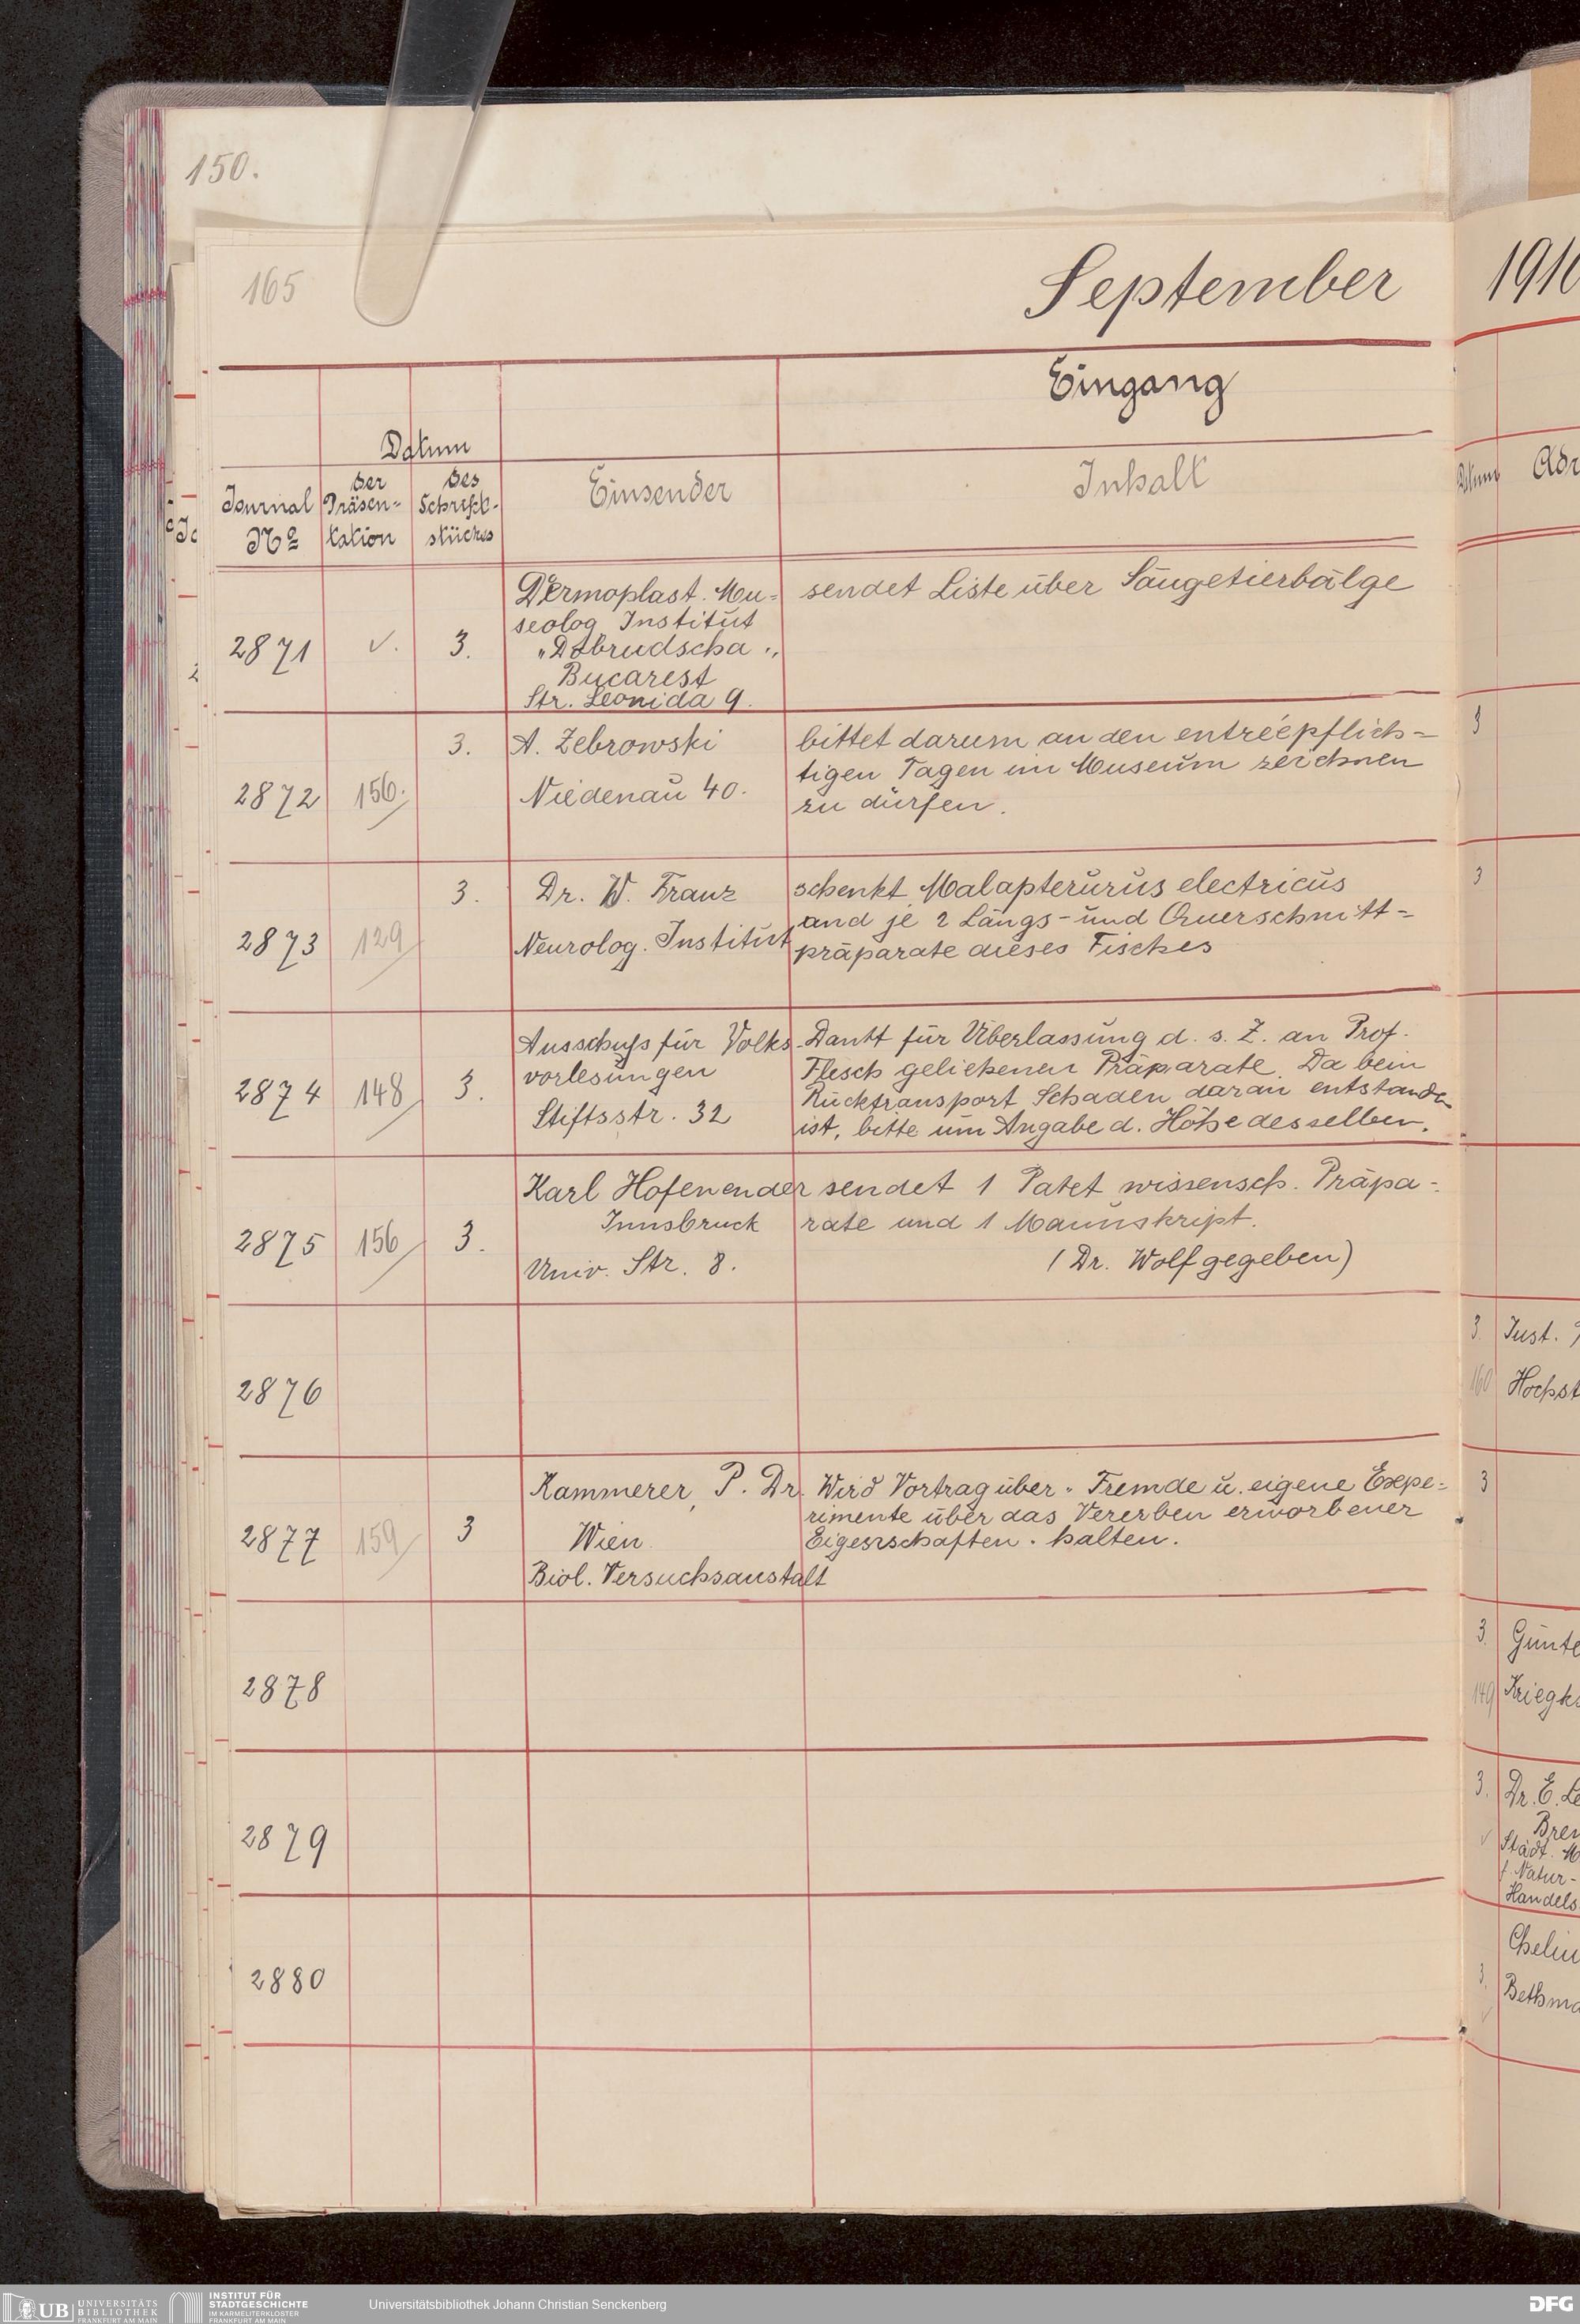 150.
165
September
1910
Eingang
Datum
Journal
Nº
der
Präsen-
tation
des
Schrift-
stückes
Einsender
Inhalt
Datum
Adr
2871
✓.
3.
Dermoplast. Mu-
seolog Institut
„Dobrudscha„
Bucarest
Str. Leonida 9.
sendet Liste über Säugetierbälge
2872
156.
3.
A. Zebrowski
Niedenau 40.
bittet darum an den entréepflich-
tigen Tagen im Museum zeichnen
zu dürfen.
3
2873
129
3.
Dr. W. Franz
Neurolog. Institut
schenkt Malapterurus electricus
und je 2 Längs- und Querschnitt-
präparate dieses Fisches
3
2874
148
3.
Ausschuss für Volks-
vorlesungen
Stiftsstr. 32
Dankt für Überlassung d. s. Z. an Prof.
Flesch geliehenen Präparate. Da beim
Rücktransport Schaden daran entstanden
ist, bitte um Angabe d. Höhe desselben.
2875
156
3.
Karl Hofenender
Innsbruck
Univ. Str. 8.
sendet 1 Paket wissensch. Präpa-
rate und 1 Manuskript.
(Dr. Wolf gegeben)
2876
3.
Inst.
160
Hochst
2877
159
3
Kammerer, P. Dr.
Wien
Biol. Versuchsanstalt
Wird Vortrag über „Fremde u. eigene Expe-
rimente über das Vererben erworbener
Eigenschaften. halten.
3
2878
3.
Günte
149
Kriegk
2879
3.
Dr. E. Le
Brem
✓
Städt. M
f. Natur-
Handels
2880
Chelin
3.
Bethma
UB UNIVERSITÄTS
BIBLIOTHEK
FRANKFURT AM MAIN
INSTITUT FÜR
STADTGESCHICHTE
IM KARMELITERKLOSTER
FRANKFURT AM MAIN
Universitätsbibliothek Johann Christian Senckenberg
DFG